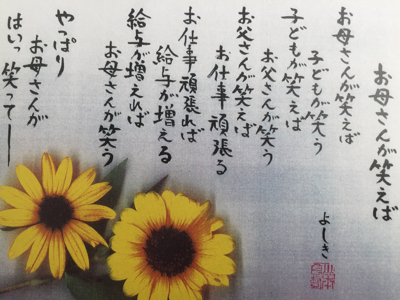 お母さんが笑えば
お母さんが笑えば
子どもが笑う
子どもが笑えば
お父さんが笑う
お父さんが笑えば
お仕事頑張る
お仕事頑張れば
給与が増える
給与が増えれば
お母さんが笑う
やっぱり
お母さんが
はいっ笑ってー
よしき